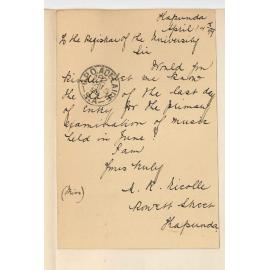 Kapunda
April 14th /99
To the Registrar of the University
Sir
Would you
kindly let me know
the date of the last day
of entry for the primary
examination of music
held in June
I am
Yours truly
(Miss) A. R. Nicolle
Street
Kapunda
G.P.O. ADELAIDE